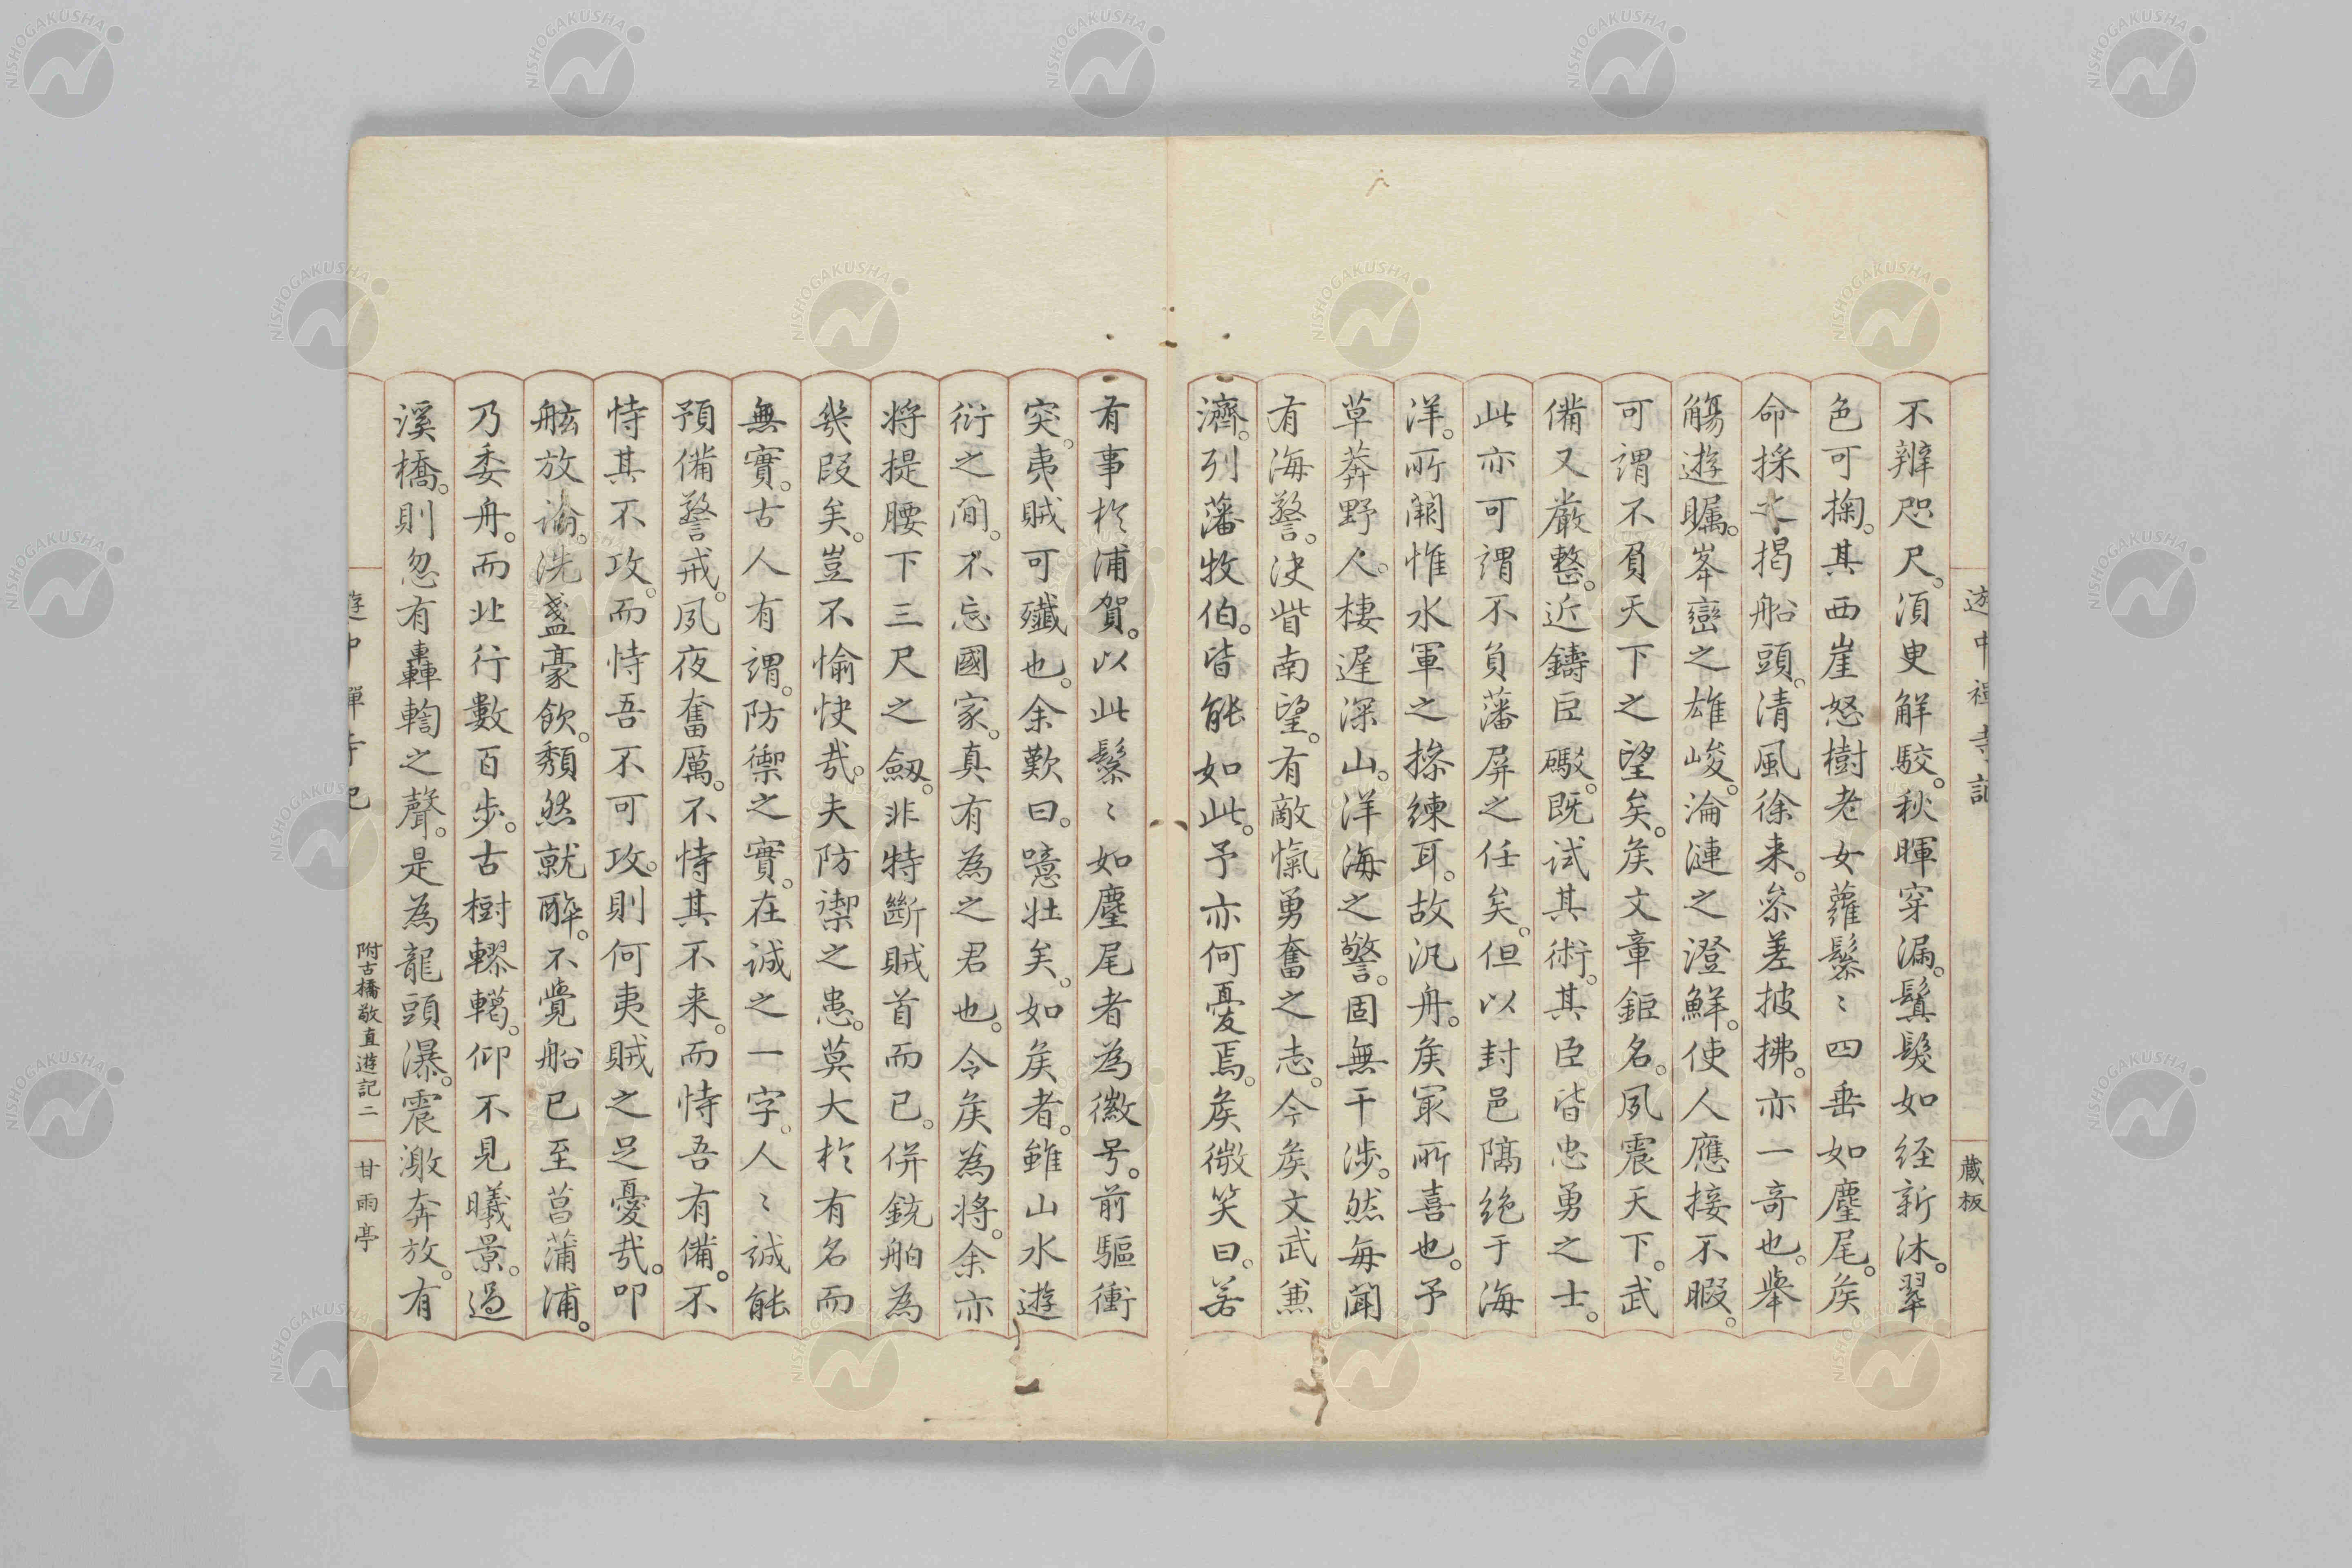 遊中禪寺記
蔵板
不辨咫尺。須臾解駮。秋暉穿漏。鬟髮如経新沐。翠
色可掬。其西崖怒樹老女蘿鬖〻四垂如麈尾。矦
命採之揭船頭。清風徐来。参差披拂。亦一奇也。舉
觴遊矚。峯巒之雄峻。淪漣之澄鮮。使人應接不暇。
可謂不負天下之望矣。矦文章鉅名。夙震天下。武
備又嚴整。近鑄巨礮。既試其術。其臣皆忠勇之士。
此亦可謂不負藩屏之任矣。但以封邑隔绝于海
洋。所闕惟水軍之操練耳。故汎舟。矦冣所喜也。予
草莽野人。棲遅深山。洋海之警。固無干渉。然每聞
有海警。決眥南望。有敵愾勇奮之志。今矦文武兼
濟。列藩牧伯。皆能如此。予亦何憂焉。矦微笑曰。若
有事於浦賀。以此鬖〻如麈尾者為徽号。前驅衝
突。夷賊可殲也。余歎曰。噫壮矣。如矦者。雖山水遊
衍之間。不忘國家。真有為之君也。今矦為将。余亦
将提腰下三尺之劔。非特斷賊首而已。併銃舶為
幾段矣。豈不愉快哉。夫防禦之患。莫大於有名而
無實。古人有謂。防禦之實。在誠之一字。人〻誠能
預備警戒。夙夜奮厲。不恃其不来。而恃吾有備。不
恃其不攻。而恃吾不可攻。則何夷賊之足憂哉。叩
舷放論。洗盞豪飲。頽然就酔。不覺船已至菖蒲浦。
乃委舟。而北行數百步。古樹轇轕。仰不見曦景。過
溪橋。則忽有轟輷之聲。是為龍頭瀑。震激奔放。有
遊中禪寺記
附古橋敬直遊記二
甘雨亭
NISHOGAKUSHA